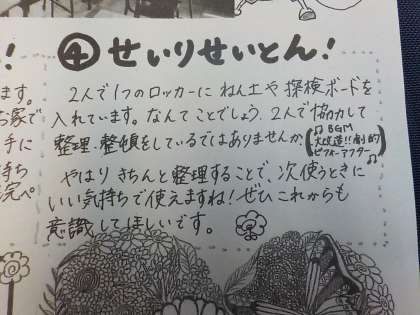 !
ます。
お家で
手に
持ち
完ペ
④ せいりせいとん!
2人で1つのロッカーに ねん土や 探検ボードを
入れています。なんてことでしょう。2人で協力して
整理・整頓をしているではありませんか。(♫BGM
大改造!!劇的
ビフォーアフター♫)
やはり きちんと整理することで、次使うときに
いい気持ちで使えますね!ぜひ これからも
意識してほしいです。